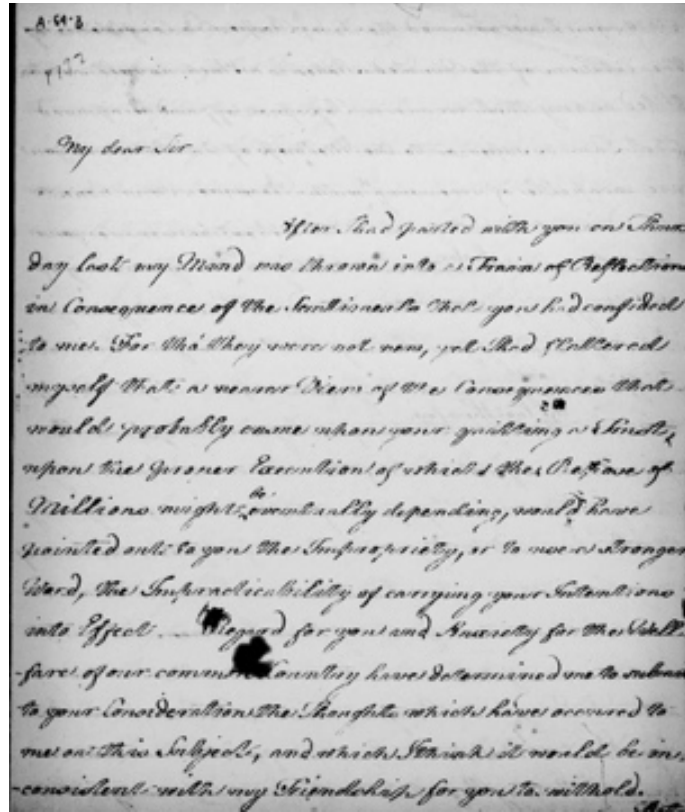 A-64-3
My dear Sir
After I had parted with you on Thurs
day last my Mind was thrown into a Train of Reflection
in Consequence of the Sentiments that you had confided
to me. For tho' they were not new, yet I had flattered
myself that a nearer View of the Consequences that
would probably ensue upon your quitting a Trust,
upon the proper Execution of which the Repose of
Millions might be eventually depending, would have
pointed out to you the Impropriety, or to use a stronger
Word, the Impracticability of carrying your Intentions
into Effect Regard for you and Anxiety for the Well
-fare of our common Country have determined me to submit
to your Consideration the Thoughts which have occured to
me on this Subject, and which I think it would be in
-consistent with my Friendship for you to withhold.